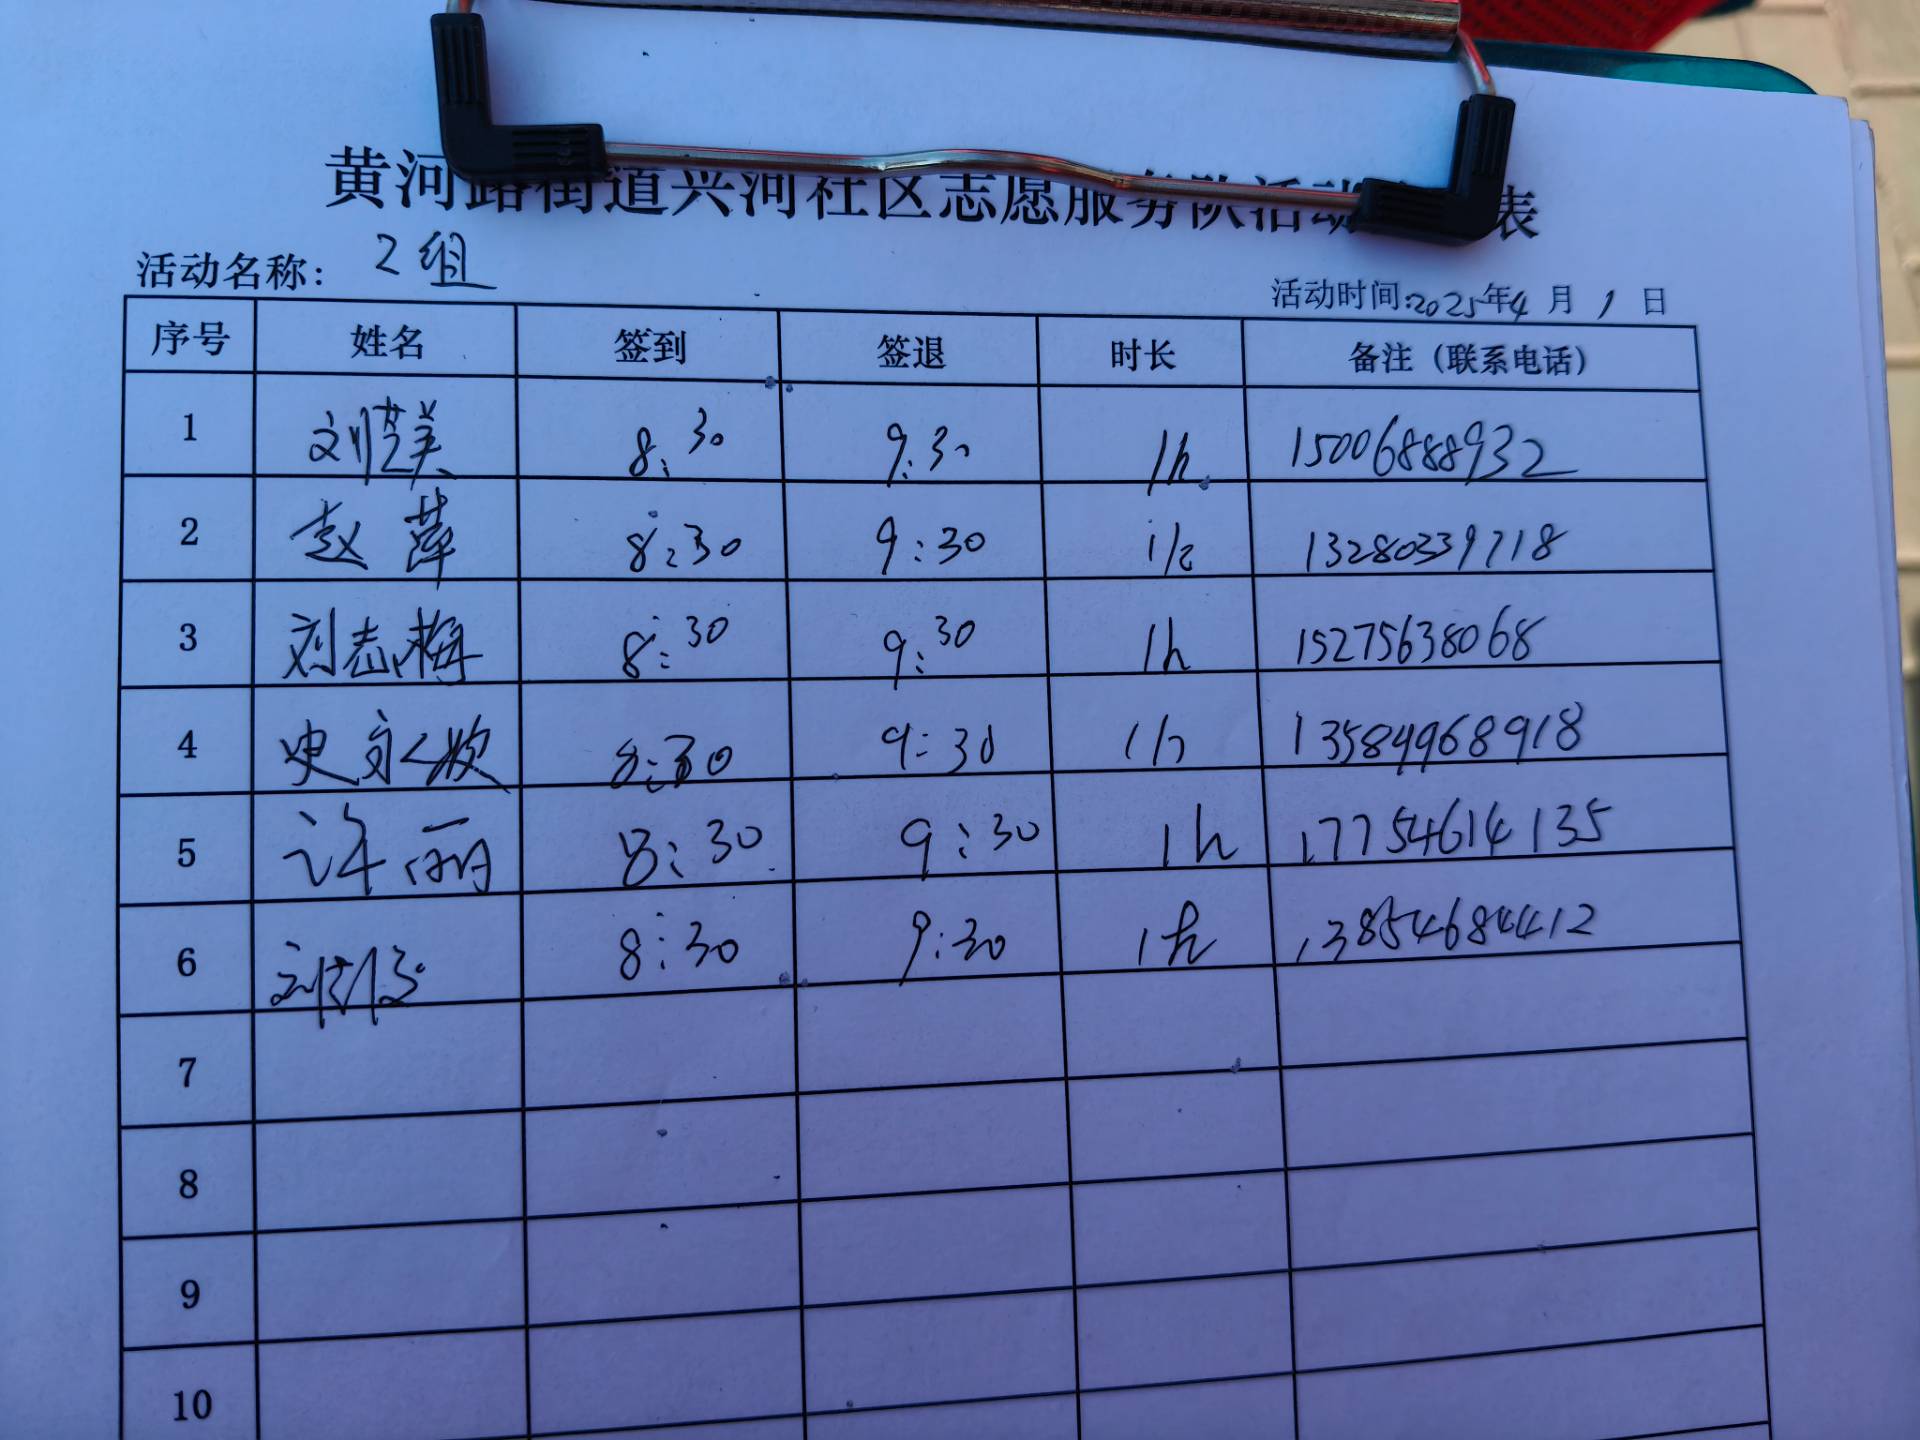 黄河路街道兴河社区志愿服务队活动 表
活动名称： 2组
活动时间:2025年4月1日
序号 姓名 签到 签退 时长 备注（联系电话）
1 刘芸美 8:30 9:30 1h 15006888932
2 赵萍 8:30 9:30 1h 13280339718
3 刘志梅 8:30 9:30 1h 15275638068
4 史 8:30 9:30 1h 13584968918
5 许丽 8:30 9:30 1h 17754614135
6 8:30 9:30 1h 13854684412
7
8
9
10